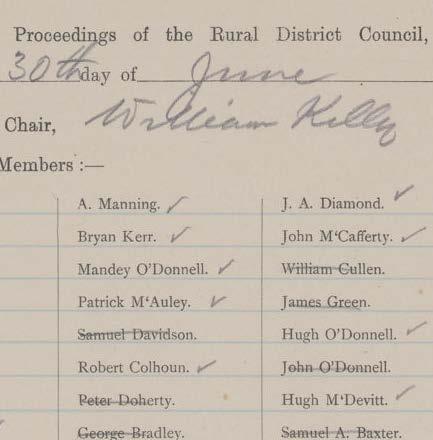 Proceedings of the Rural District Council,
30th day of June
Chair, William Kelly
Members :—
A. Manning. ✓
Bryan Kerr. ✓
Mandey O'Donnell. ✓
Patrick M‘Auley. ✓
Samuel Davidson.
Robert Colhoun. ✓
Peter Doherty.
George Bradley.
J. A. Diamond. ✓
John M‘Cafferty. ✓
William Cullen.
James Green.
Hugh O'Donnell. ✓
John O'Donnell.
Hugh M‘Devitt. ✓
Samuel A. Baxter.